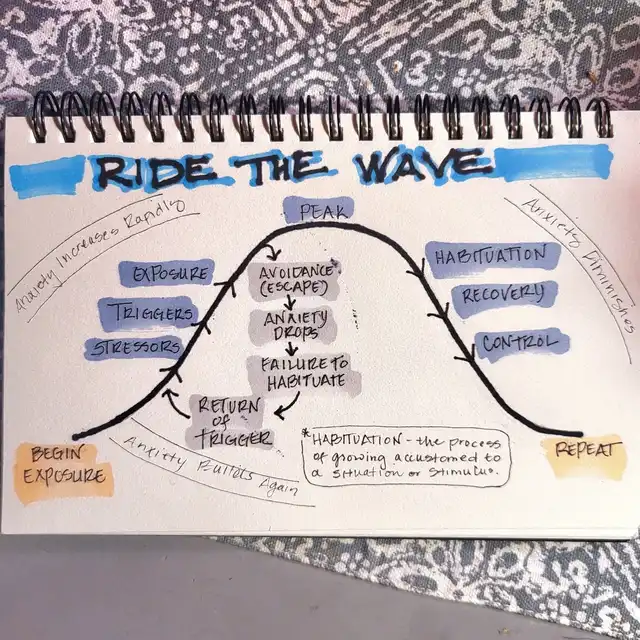 RIDE THE WAVE
Anxiety Increases Rapidly
PEAK
Anxiety Diminishes
EXPOSURE
TRIGGERS
STRESSORS
AVOIDANCE
(ESCAPE)
ANXIETY
DROPS
FAILURE TO
HABITUATE
RETURN
OF
TRIGGER
HABITUATION
RECOVERY
CONTROL
BEGIN
EXPOSURE
Anxiety Builds Again
*HABITUATION - the process
of growing accustomed to
a situation or stimulus.
REPEAT